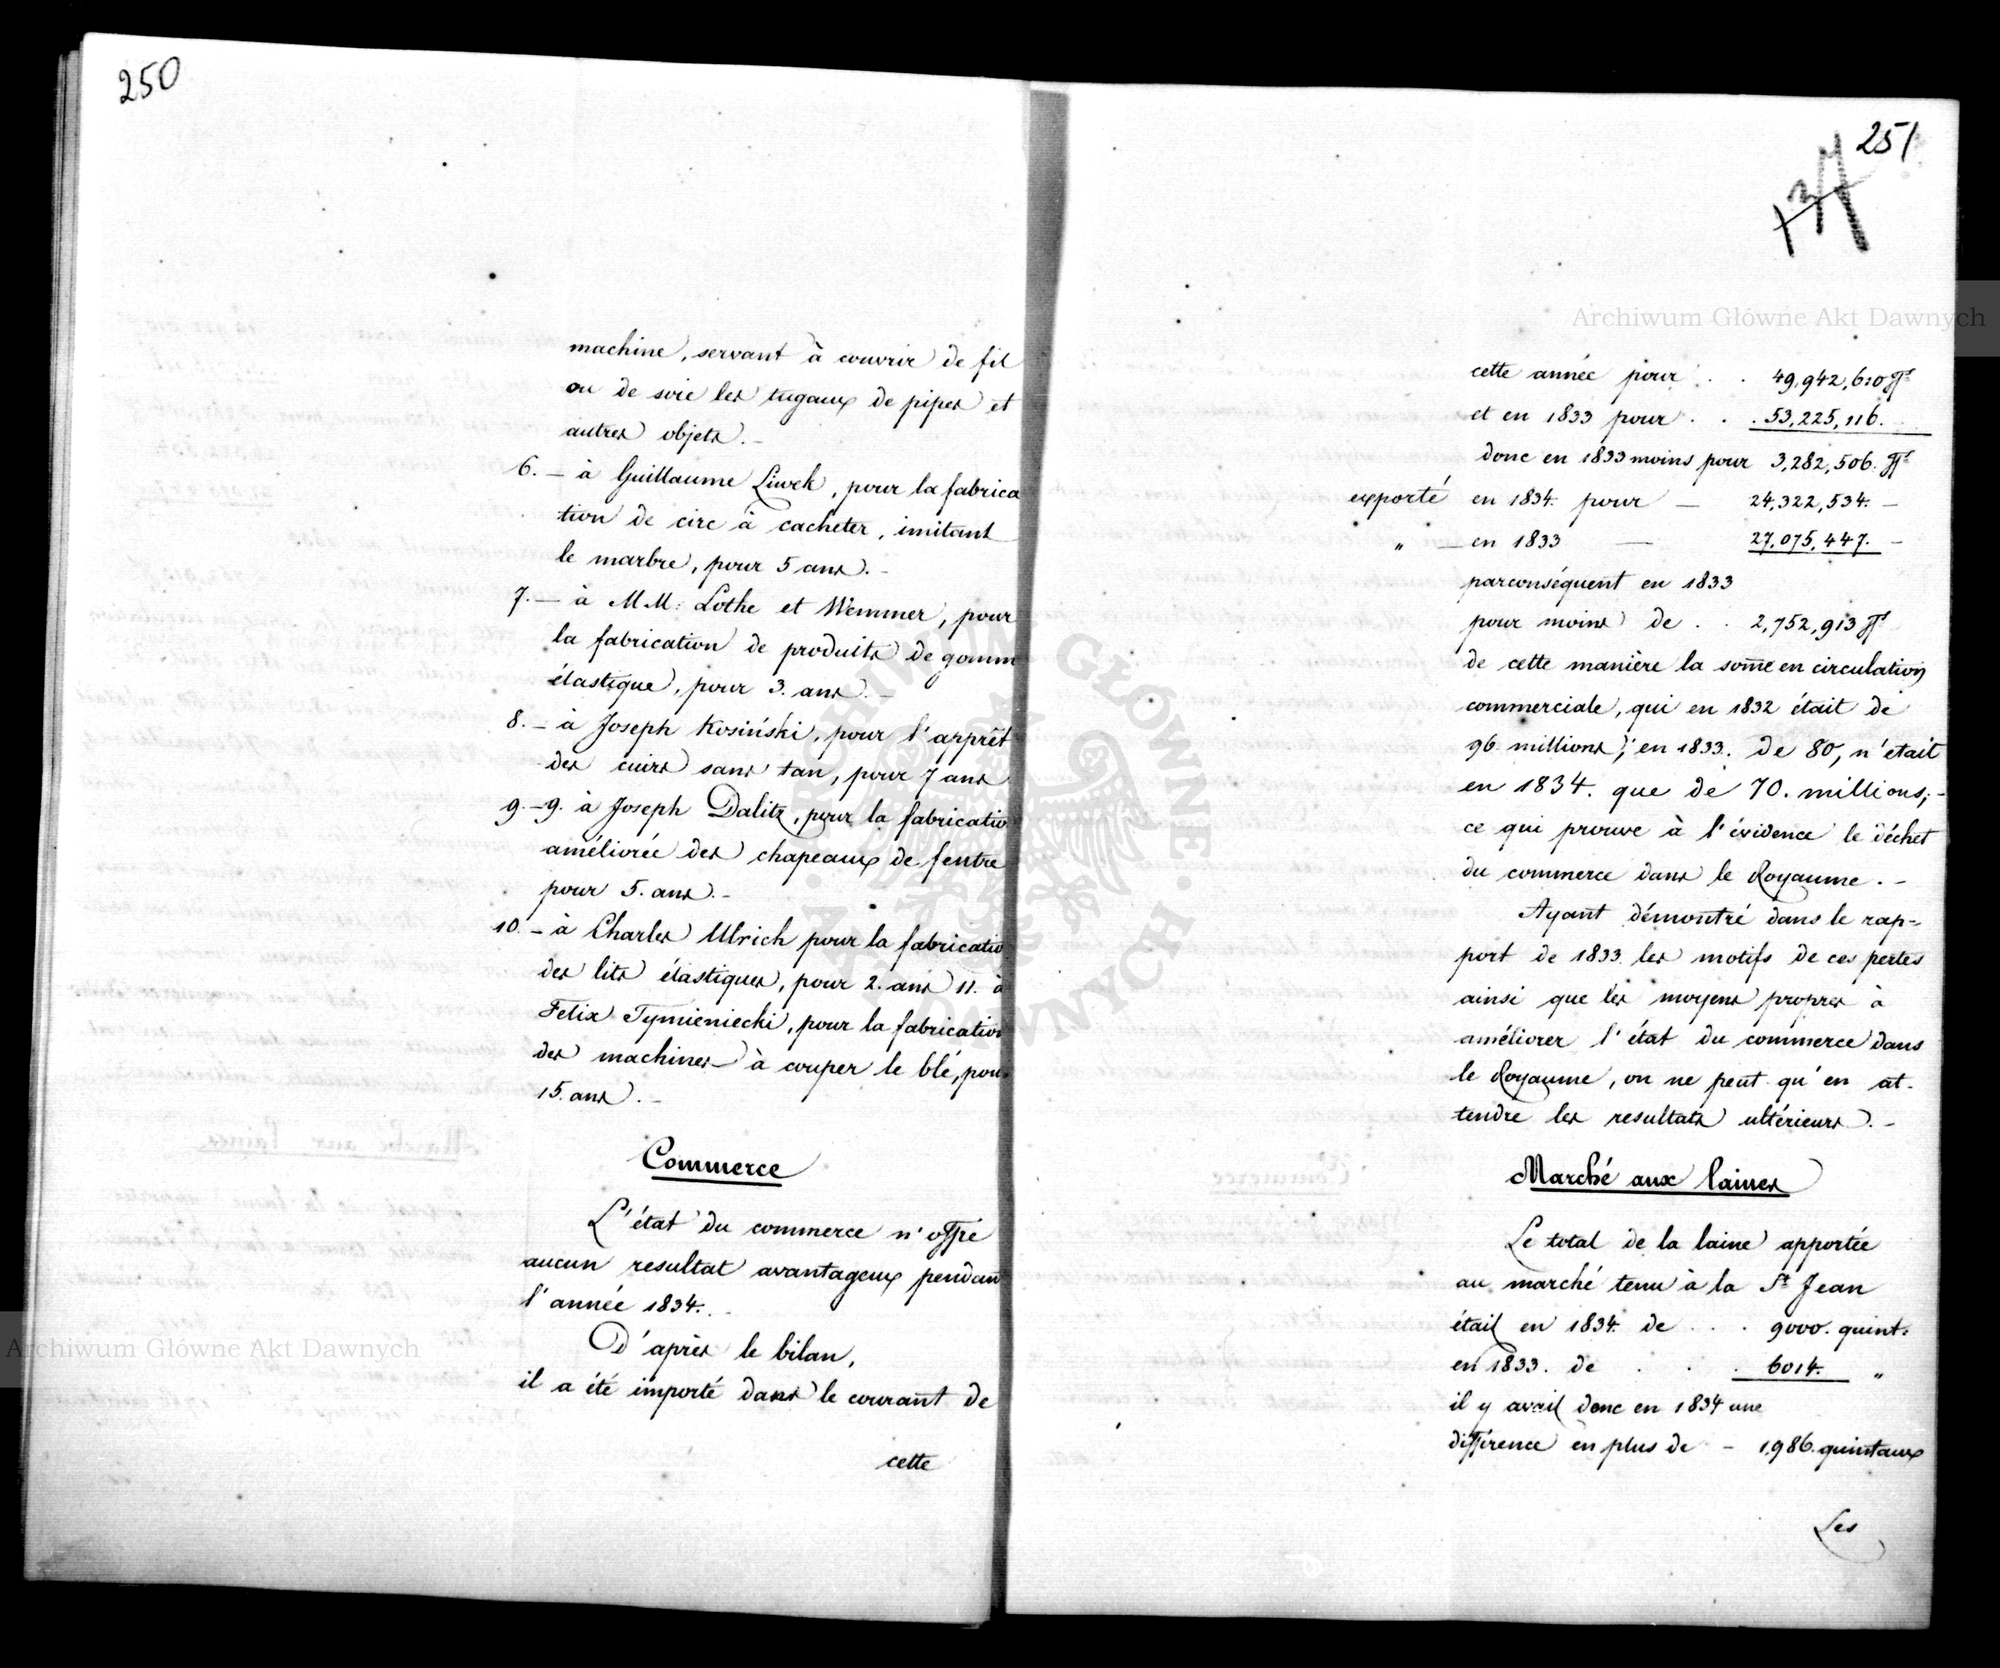 250
machine, servant à couvrir de fil
ou de soie les tugaux de pipes et
autres objets.-
6. - à Guillaume Liwek, pour la fabrica
tion de cire à cacheter, imitant
le marbre, pour 5 ans.-
7. - à MM: Lothe et Wemmer, pour
la fabrication de produits de gomm
élastique, pour 3. ans.-
8. - à Joseph Kosiński, pour l'apprêt
des cuirs sans tan, pour 7 ans
9. - 9. à Joseph Dalitz, pour la fabricatio
améliorée des chapeaux de fentre
pour 5. ans.-
10. - à Charles Ulrich pour la fabricatio
des lits élastiques, pour 2. ans 11. à
Felix Tymieniecki, pour la fabrication
des machines à couper le blé, pou
15. ans.-
Commerce
L'état du commerce n'offre
aucun resultat avantageux pendan
l'année 1834.-
D'après le bilan,
il a été importé dans le courant de
cette
251
cette année pour . . 49,942,610 fs
et en 1833 pour . . . 53,225,116.
donc en 1833 moins pour 3,282,506. fs
exporté en 1834. pour — 24,322,534. -
" — en 1833 — 27,075,447. -
parconséquent en 1833
pour moins de . . 2,752,913 fs
de cette manière la some en circulation
commerciale, qui en 1832 était de
96 millions; en 1833. de 80, n'etait
en 1834. que de 70. millions; -
ce qui prouve à l'évidence le déchet
du commerce dans le Royaume. -
Ayant démontré dans le rap=
port de 1833. les motifs de ces pertes
ainsi que les moyens propres à
améliorer l'état du commerce dans
le Royaume, on ne peut qu'en at-
tendre les resultats ultérieurs.-
Marché aux laines
Le total de la laine apportée
au marché tenu à la St Jean
était en 1834. de . . . 9000. quint.
en 1833. de . . . 6014. "
il y avait donc en 1834 une
différence en plus de - 1,986. quintaux
Les
Archiwum Główne Akt Dawnych
Archiwum Główne Akt Dawnych
ARCHIWUM GŁÓWNE AKT DAWNYCH